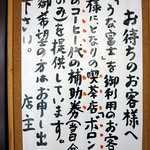 お待ちのお客様へ
「うな富士」を御利用のお客
様にとなりの喫茶店「ボロン」
のコーヒー代の補助券(当日
のみ)を提供してます。
御希望の方はお申し出
下さい。 店主